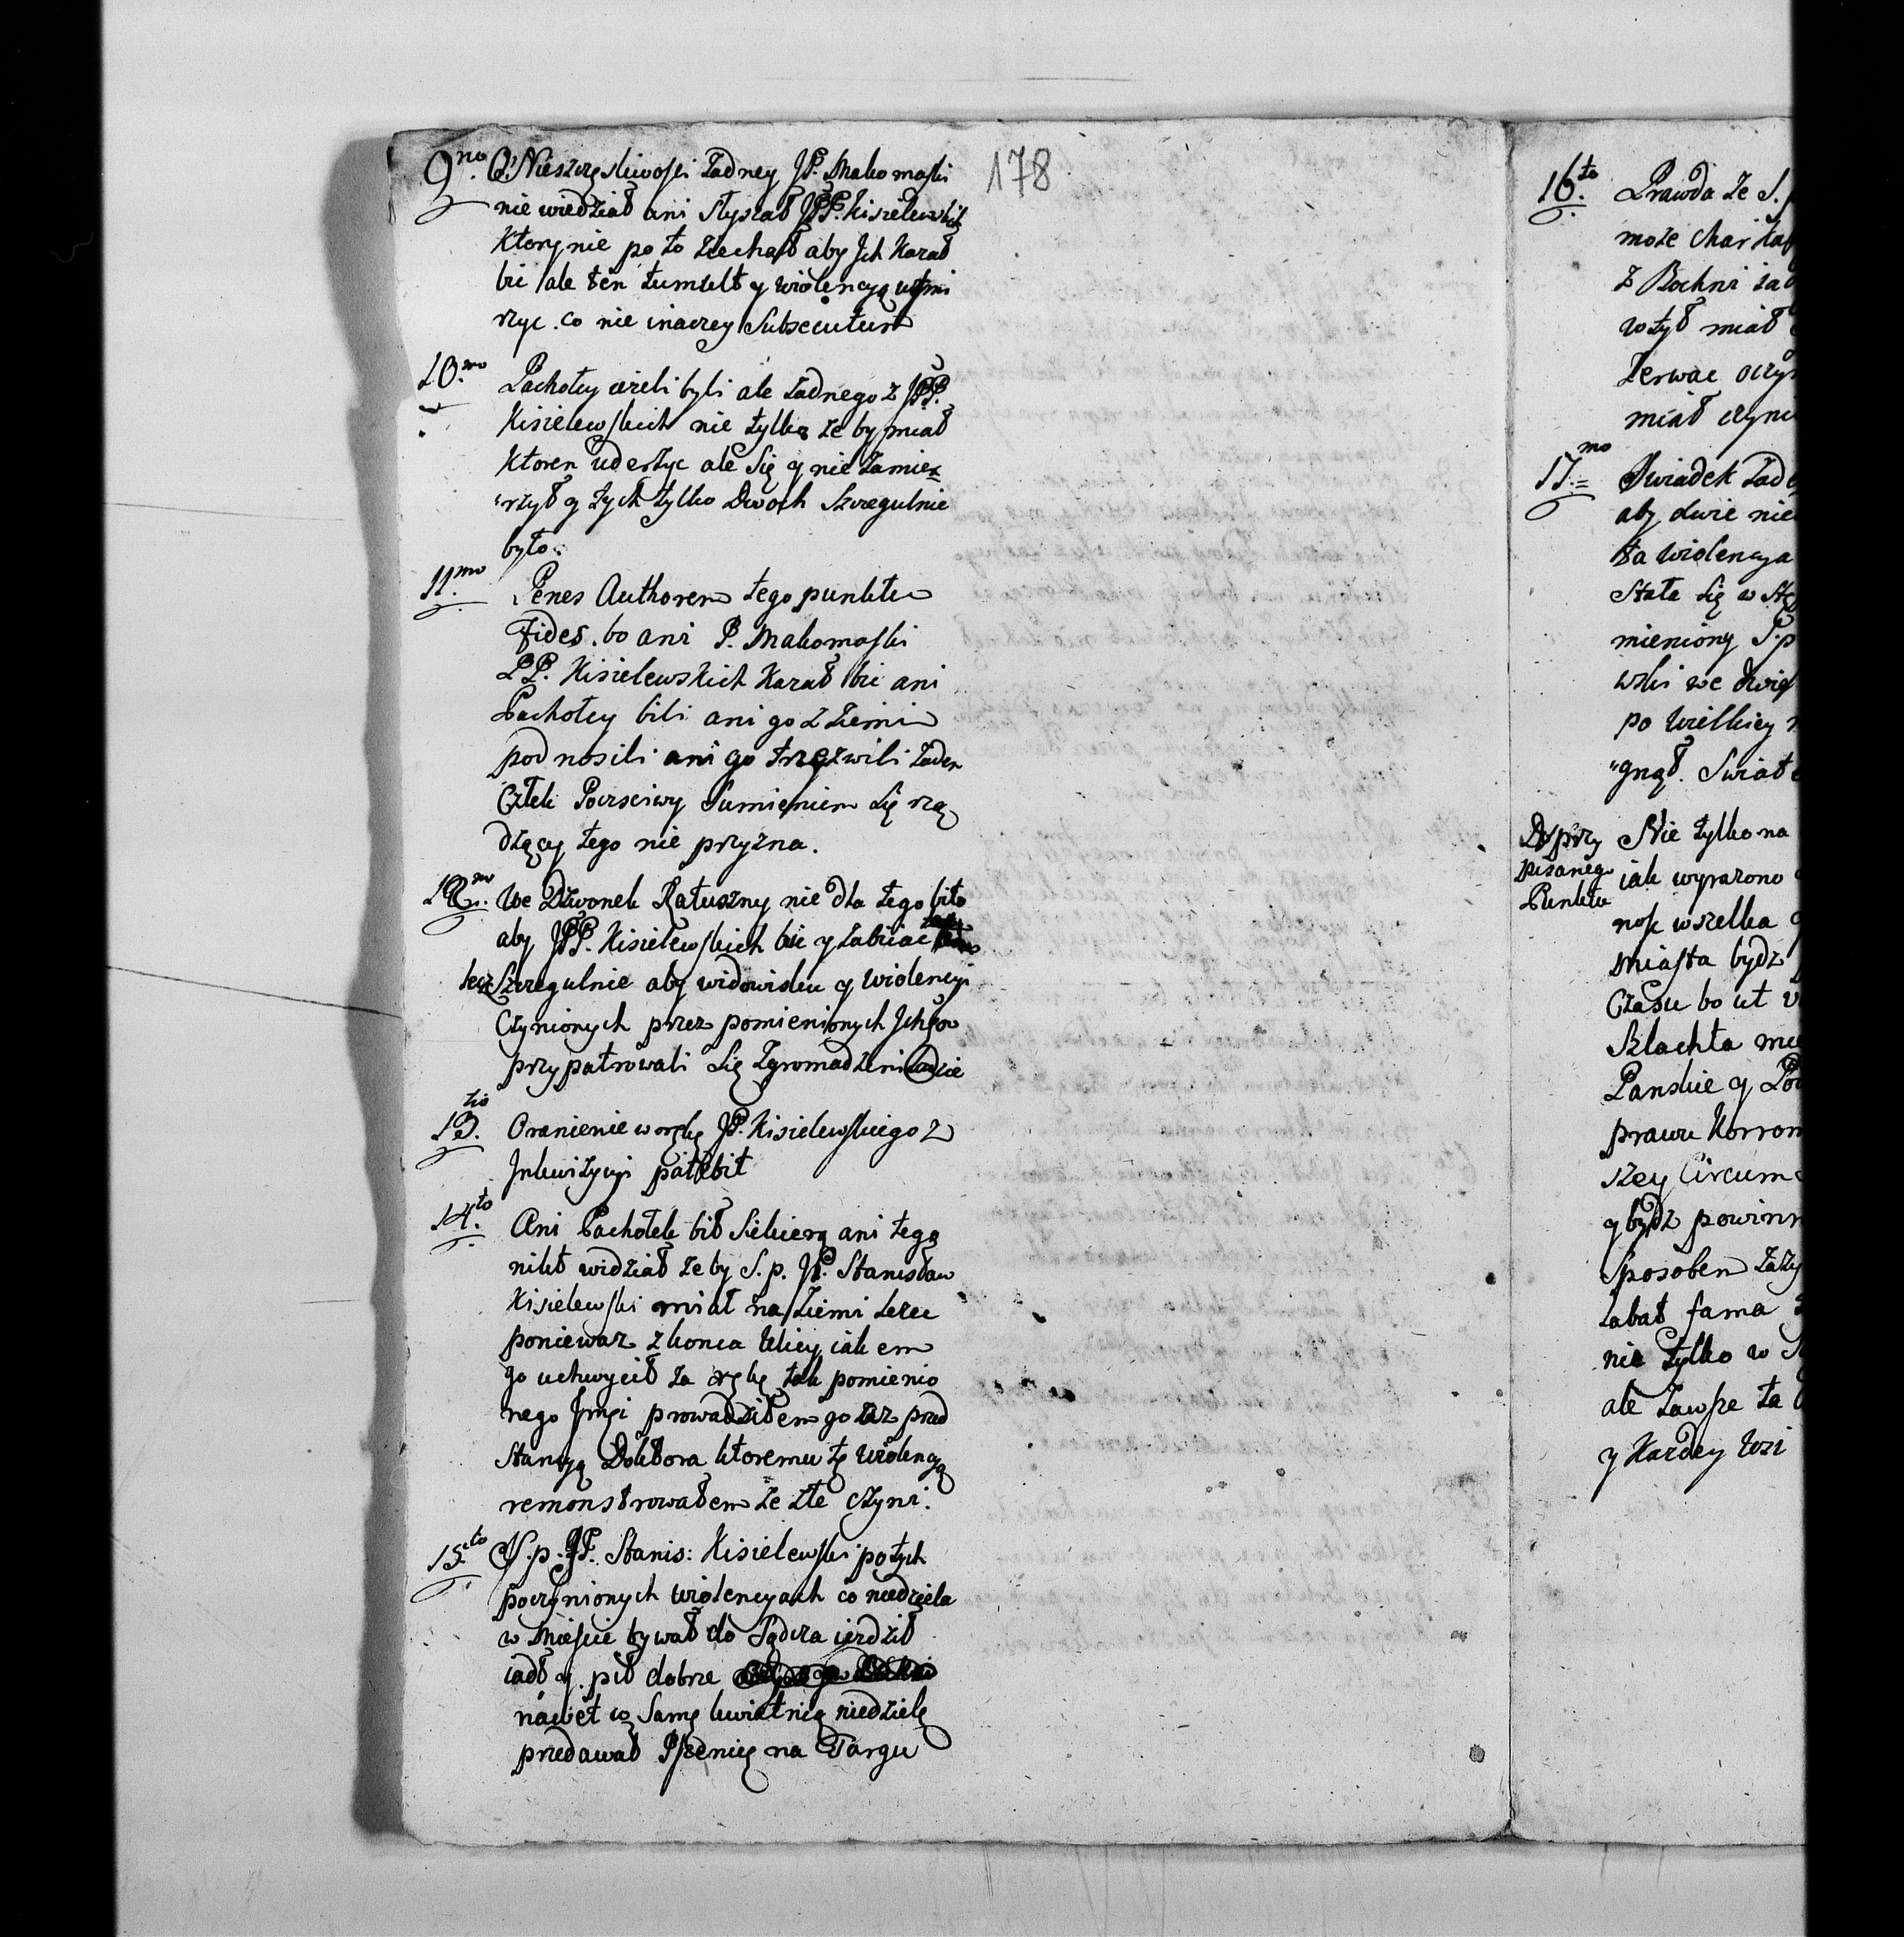 178
9no. O Nieszczęsliwosci żadney JP. Makomaski
nie wiedział ani słyszał JPP. Kisielewskich
Ktory nie po to ziechał aby Jch Kazał
bić ale ten tumult y wiolencyą usmi
rzyc. co nie inaczey Subsecutum
10.mo Pachołcy cżeli byli ale żadnego z JPP.
Kisielewskich nie tylko że by miał
Ktoren uderżyc ale się y nie zamie=
rzył y tych tylko Dwoch Szczegulnie
było.
11.mo Penes Authorem tego punktu
Fides. bo ani P. Makomaski
PP. Kisielewskich Kazał bic ani
Pachołcy bili ani go z Ziemi
podnosili ani go trzęzwili żaden
Człek Poczsciwy Sumieniem się rzą
dzący tego nie przyzna.
12.mo We Dzwonek Ratuszny nie dla tego bito
aby JPP. Kisielewskich bic y zabiiac
lecz Szczegulnie aby widowisku y wiolencyi
Czynionych przez pomienionych Jchmow
przypatrowali się Zgromadzeni Ludzie
13.tio Oranienie w rękę JP. Kisielewskiego z
Jnkwizycyi patebit
14.to Ani Pachołek bił Siekierą ani tego
nikt widział że by S. p. JP. Stanisław
Kisielewski miał na Ziemi leżec
poniewaz z konca Ulicy iak em
go uchwycił za rękę tak pomienio
nego Jmci prowadziłem go az przed
Stancyą Doktora ktoremu tę wiolencyą
remonstrowałem że złe czyni.
15.to S. p. JP. Stanis: Kisielewski po tych
poczynionych wiolencyach co niedziela
w Miescie bywał do Sądcza iezdził
iadł y. pił dobrze
nawet w Samę kwiatnią niedzielę
przedawał Pszenicę na Targu
16.to Prawda że S.
moze char
z Bochni
wżył miał
Zerwac
miał czyni
17.mo= Swiadek
aby dwie nie
ta wiolencya
Stała się w
mieniony S. p
we
po wielkiey
"gnął. Swiat
Do przy
pisanego
Punktu
Nie tylko na
iak wyrazono
wszelka
Miasta bydz
Czasu bo ut
Szlachta
Panskie y
prawu
szey Circum
y bydz powinn
Sposobem
fama
nie tylko w
ale zawsze ta
y Kazdey